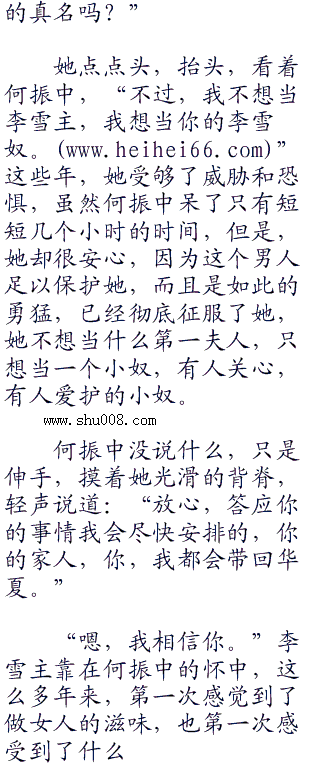 的真名吗？”
她点点头，抬头，看着
何振中，“不过，我不想当
李雪主，我想当你的李雪
奴。(www.heihei66.com)”
这些年，她受够了威胁和恐
惧，虽然何振中呆了只有短
短几个小时的时间，但是，
她却很安心，因为这个男人
足以保护她，而且是如此的
勇猛，已经彻底征服了她，
她不想当什么第一夫人，只
想当一个小奴，有人关心，
有人爱护的小奴。
www.shu008.com
何振中没说什么，只是
伸手，摸着她光滑的背脊，
轻声说道：“放心，答应你
的事情我会尽快安排的，你
的家人，你，我都会带回华
夏。”
“嗯，我相信你。”李
雪主靠在何振中的怀中，这
么多年来，第一次感觉到了
做女人的滋味，也第一次感
受到了什么